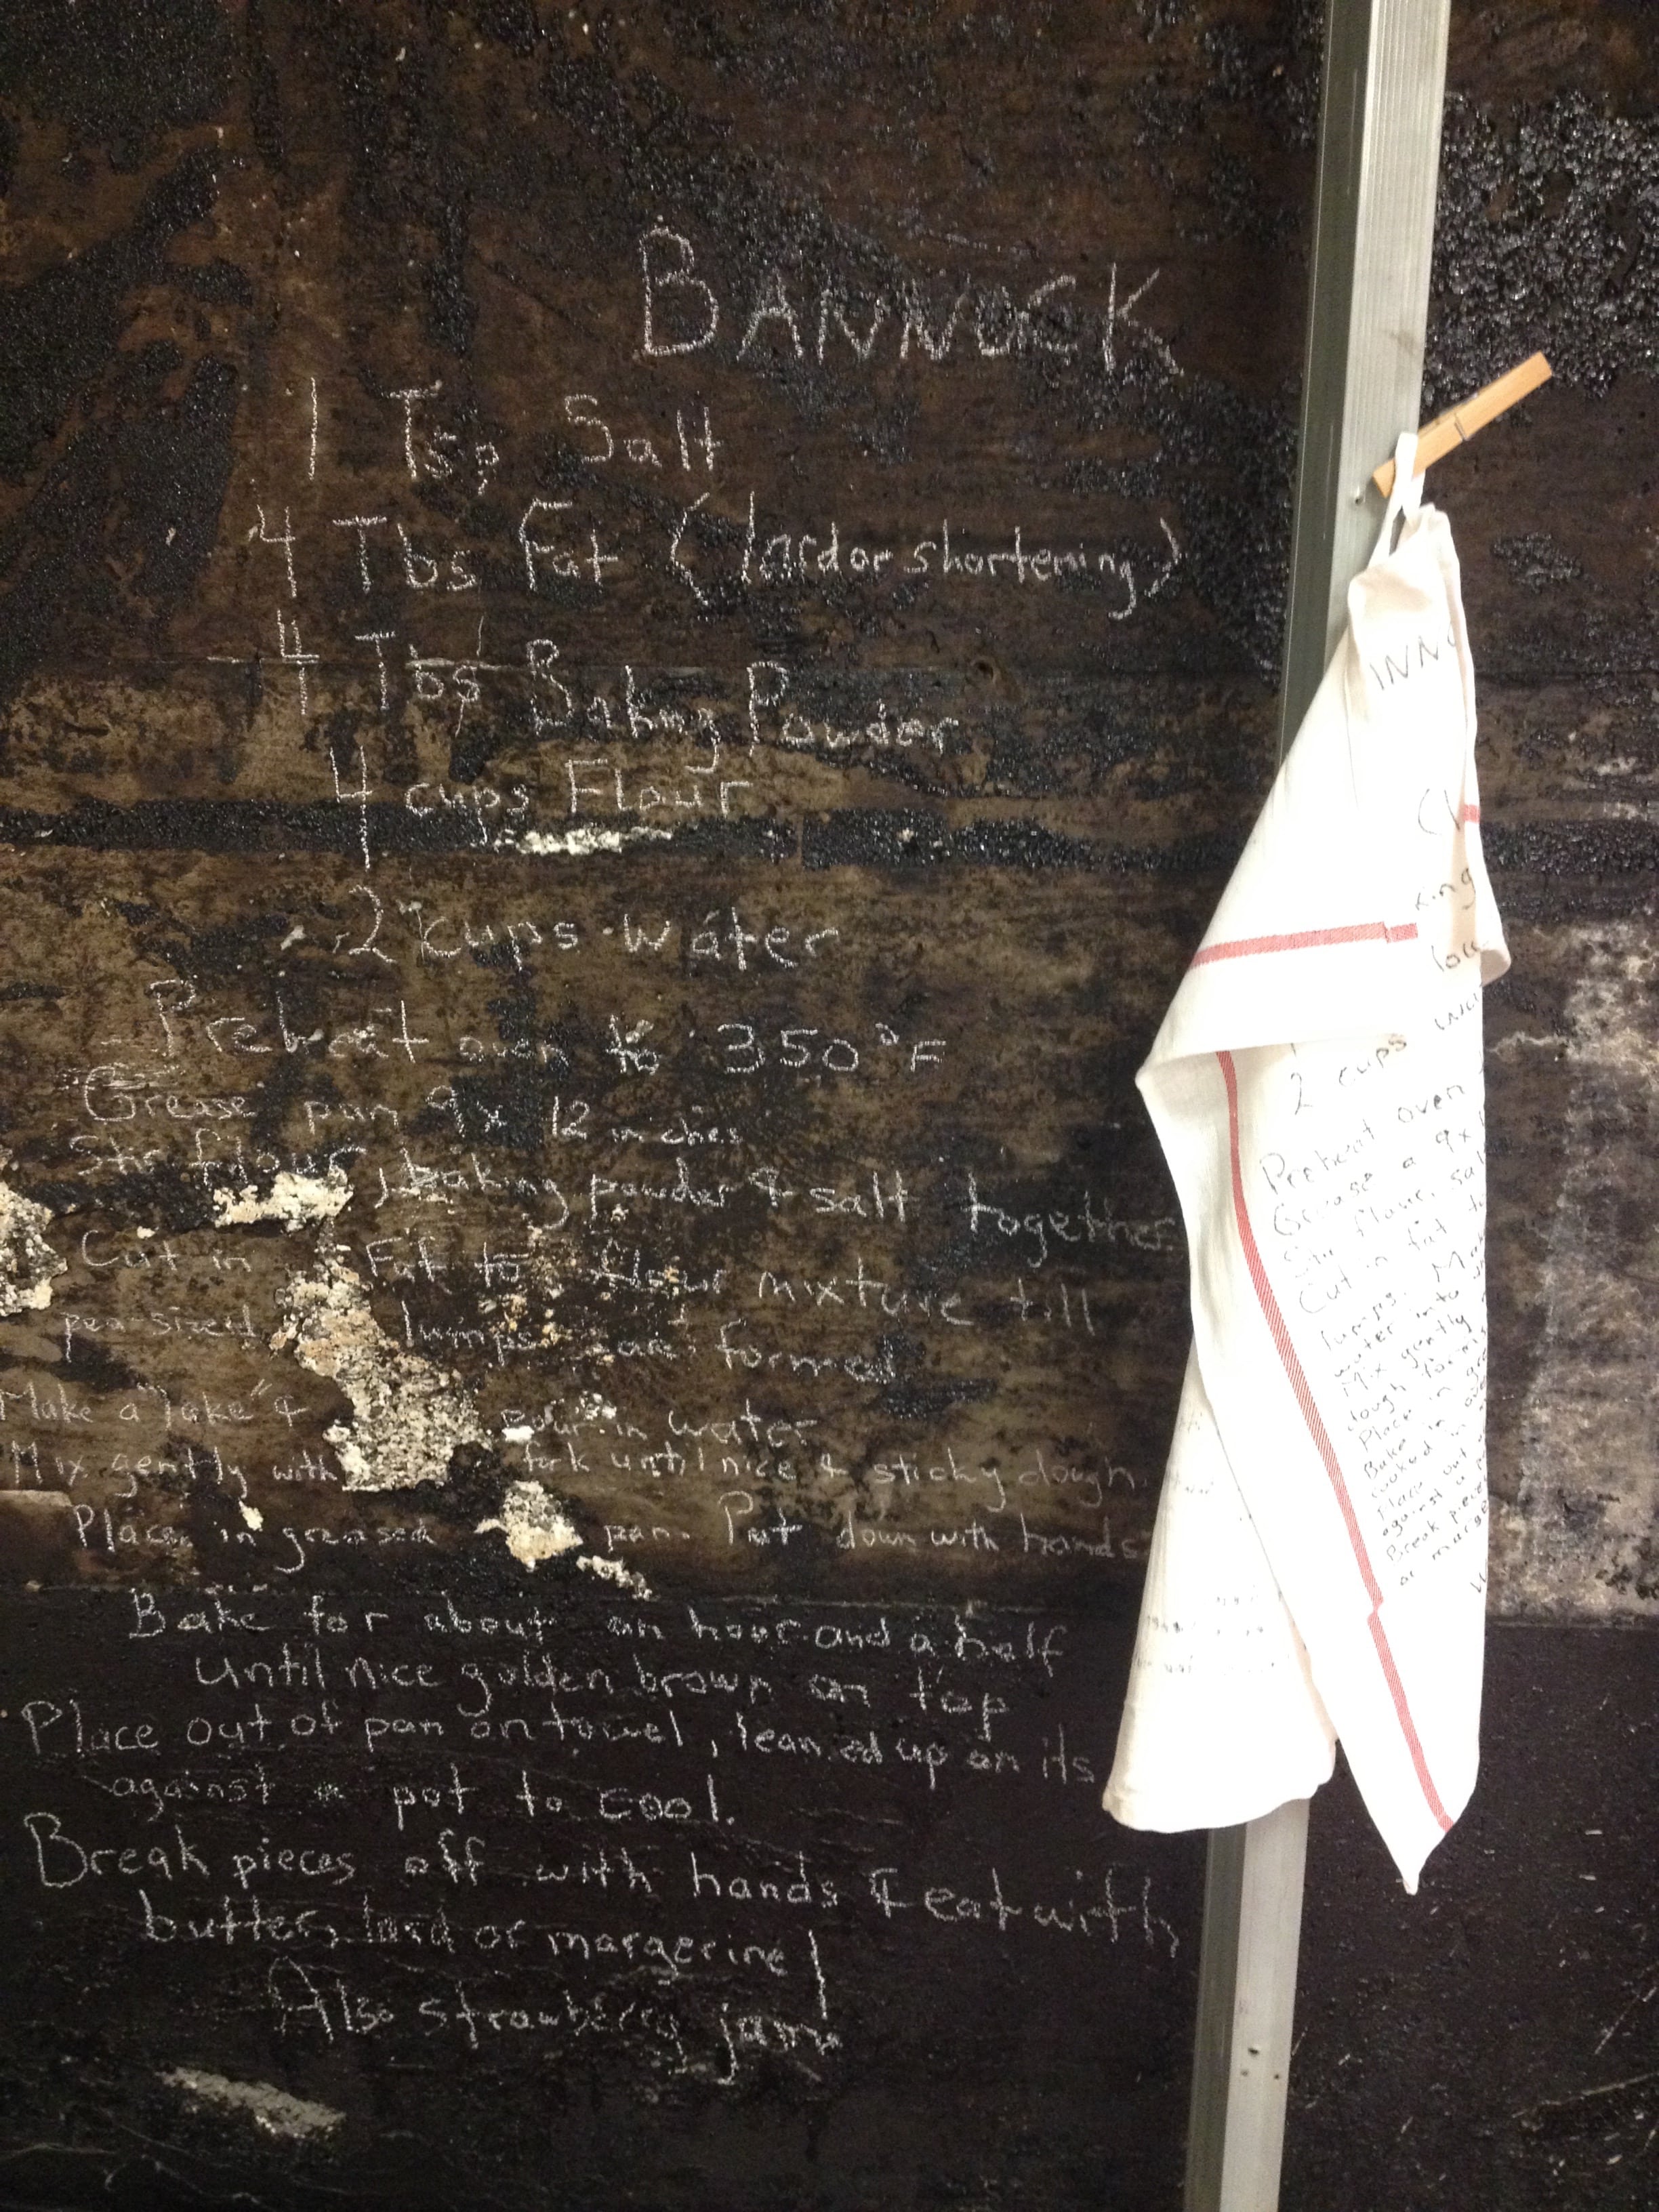 BANNOCK
1 Tsp Salt
4 Tbs Fat (lard or shortening)
4 Tbs Baking Powder
4 cups Flour
2 cups water
Preheat oven to 350°F
Grease pan 9x 12 inches
Stir flour, baking powder & salt together.
Cut in Fat to flour mixture till
pea-sized lumps are formed
Make a "lake" & pour in water.
Mix gently with fork until nice & sticky dough.
Place in greased pan. Pat down with hands
Bake for about an hour and a half
until nice golden brown on top
Place out of pan on towel, leaned up on its
against a pot to cool.
Break pieces off with hands & eat with
butter, lard or margerine!
Also strawberry jam
INNO
king
2 cups
Preheat oven
Grease a 9x
Stir flour, sal
Cut in fat to
lumps. M
water into
Mix gently
dough forms
Place in gre
Bake
cooked in
Place out
against a
Break pieces
or marge